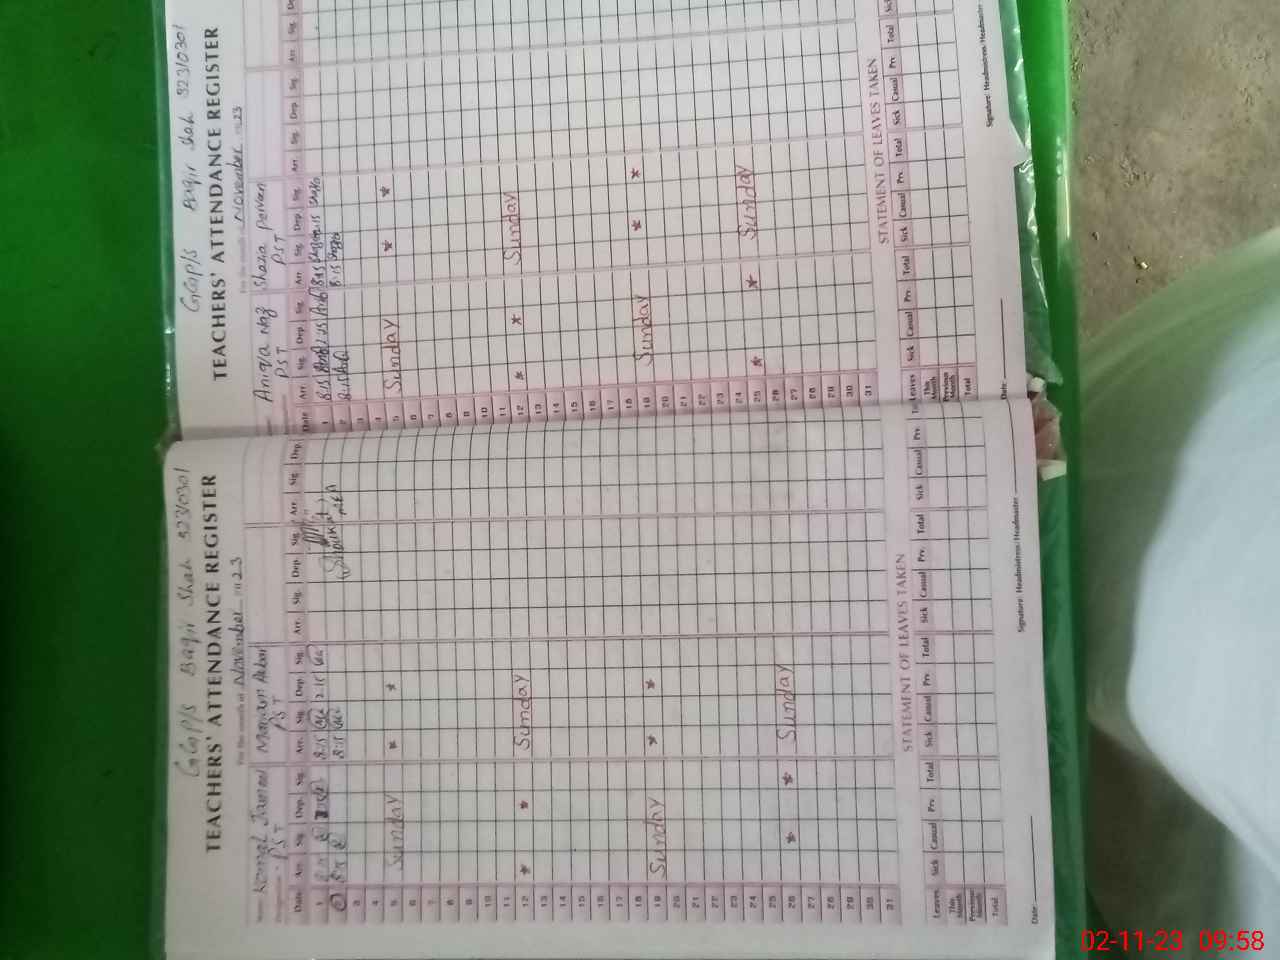 GGP/S Baqir Shah 32310301
TEACHERS' ATTENDANCE REGISTER
For the month of November 2023
Name Komal Jamal Maryam Akbar
PST PST
Date Arr. Sig. Dep. Sig. Arr. Sig. Dep. Sig. Arr. Sig. Dep. Sig. Arr. Sig. Dep.
1 8:15 2.15
2 8:15 8:15
3
4
5 Sunday * *
6
7
8
9
10
11
12 * * Sunday
13
14
15
16
17
18
19 Sunday * *
20
21
22
23
24
25
26 * * Sunday
27
28
29
30
31
STATEMENT OF LEAVES TAKEN
Leaves Sick Casual Prv. Total Sick Casual Prv. Total Sick Casual Prv. Total Sick Casual Prv.
This Month
Previous Month
Total
Date: Signature: Headmistress/Headmaster
GGP/S Baqir Shah 32310301
TEACHERS' ATTENDANCE REGISTER
For the month November 2023
Aniqa Naz Shazia Perveen
PST PST
Date Arr. Sig. Dep. Sig. Arr. Sig. Dep. Sig. Arr. Sig. Dep. Sig. Arr. Sig.
1 8:15 2.15 8:15 2.15
2 8:15 8:15
3
4
5 Sunday * *
6
7
8
9
10
11
12 * * Sunday
13
14
15
16
17
18
19 Sunday * *
20
21
22
23
24
25 * * Sunday
26
27
28
29
30
31
STATEMENT OF LEAVES TAKEN
Leaves Sick Casual Prv. Total Sick Casual Prv. Total Sick Casual Prv. Total
This Month
Previous Month
Total
Date: Signature: Headmistress/Headmaster
02-11-23 09:58